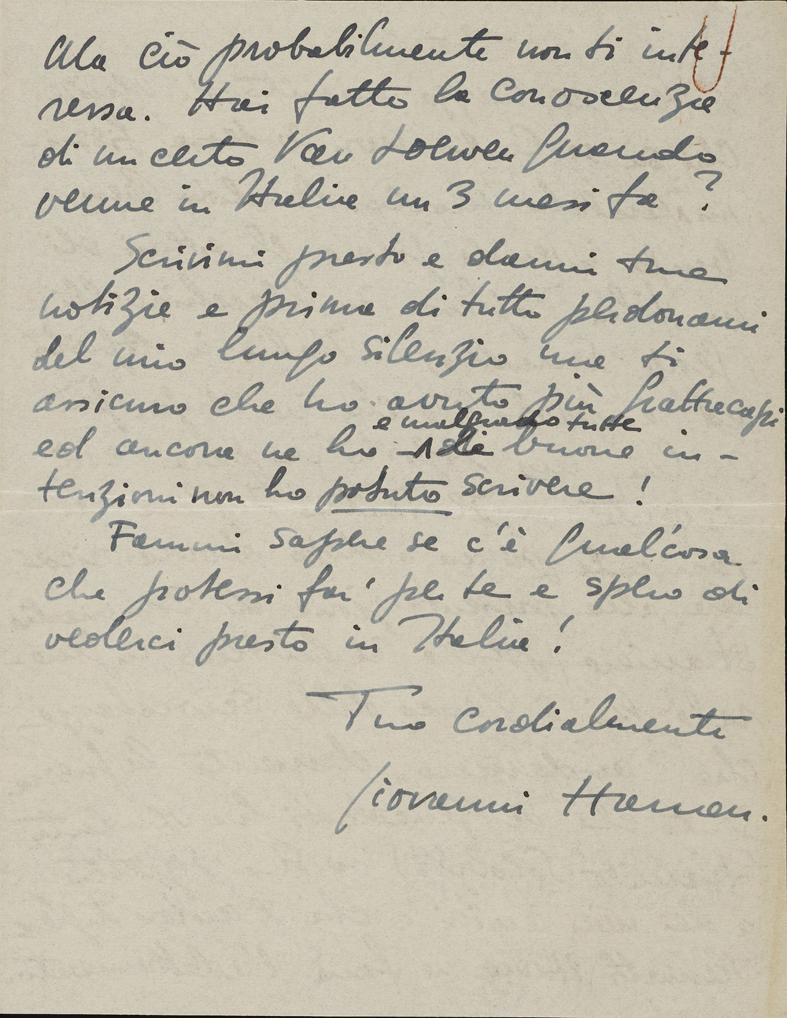 Ma ciò probabilmente non ti inte-
ressa. Hai fatto la conoscenza
di un certo Van Loewen quando
venne in Italia un 3 mesi fa?
Scrivimi presto e dammi tue
notizie e prima di tutto perdonami
del mio lungo silenzio ma ti
assicuro che ho avuto più grattacapi
e malgrado tutte
ed ancora ne ho le buone in-
tenzioni non ho potuto scrivere!
Fammi sapere se c'è qual'cosa
che potessi far' per te e spero di
vederci presto in Italia!
Tuo cordialmente
Giovanni